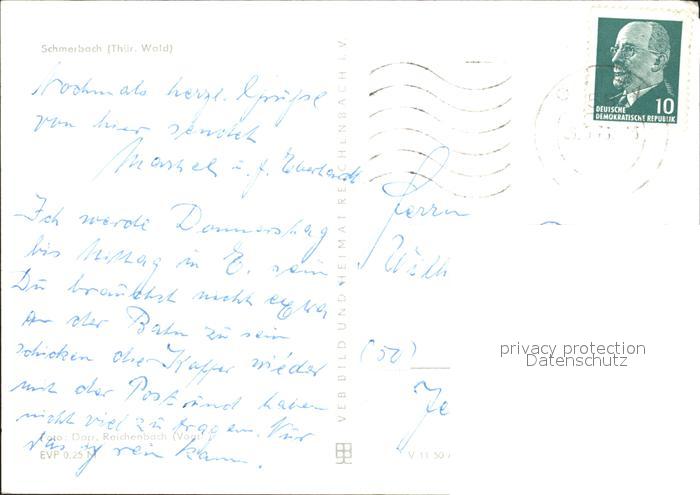 Schmerbach (Thür. Wald)
Nochmals herzl. Grüße
von hier sendet
u. J. Eberhardt
Ich werde Donnerstag
bis Mittag in E. sein
Du brauchst nicht extra
an der Bahn zu sein
schicken den Koffer wieder
mit der Post und haben
nicht viel zu tragen. Nur
das ich rein kann.
Foto: Darr, Reichenbach (Vogtl.)
EVP 0,25 M
VEB BILD UND HEIMAT REICHENBACH I. V.
V 11 50 A
DEUTSCHE
DEMOKRATISCHE REPUBLIK
10
Herrn
Wilh
(50)
privacy protection
Datenschutz